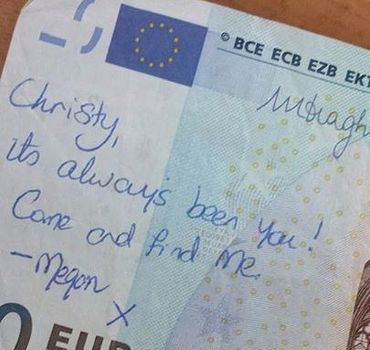 © BCE ECB EZB EKT
Christy,
its always been you!
Come and find me.
-Megan
X
0 EUR